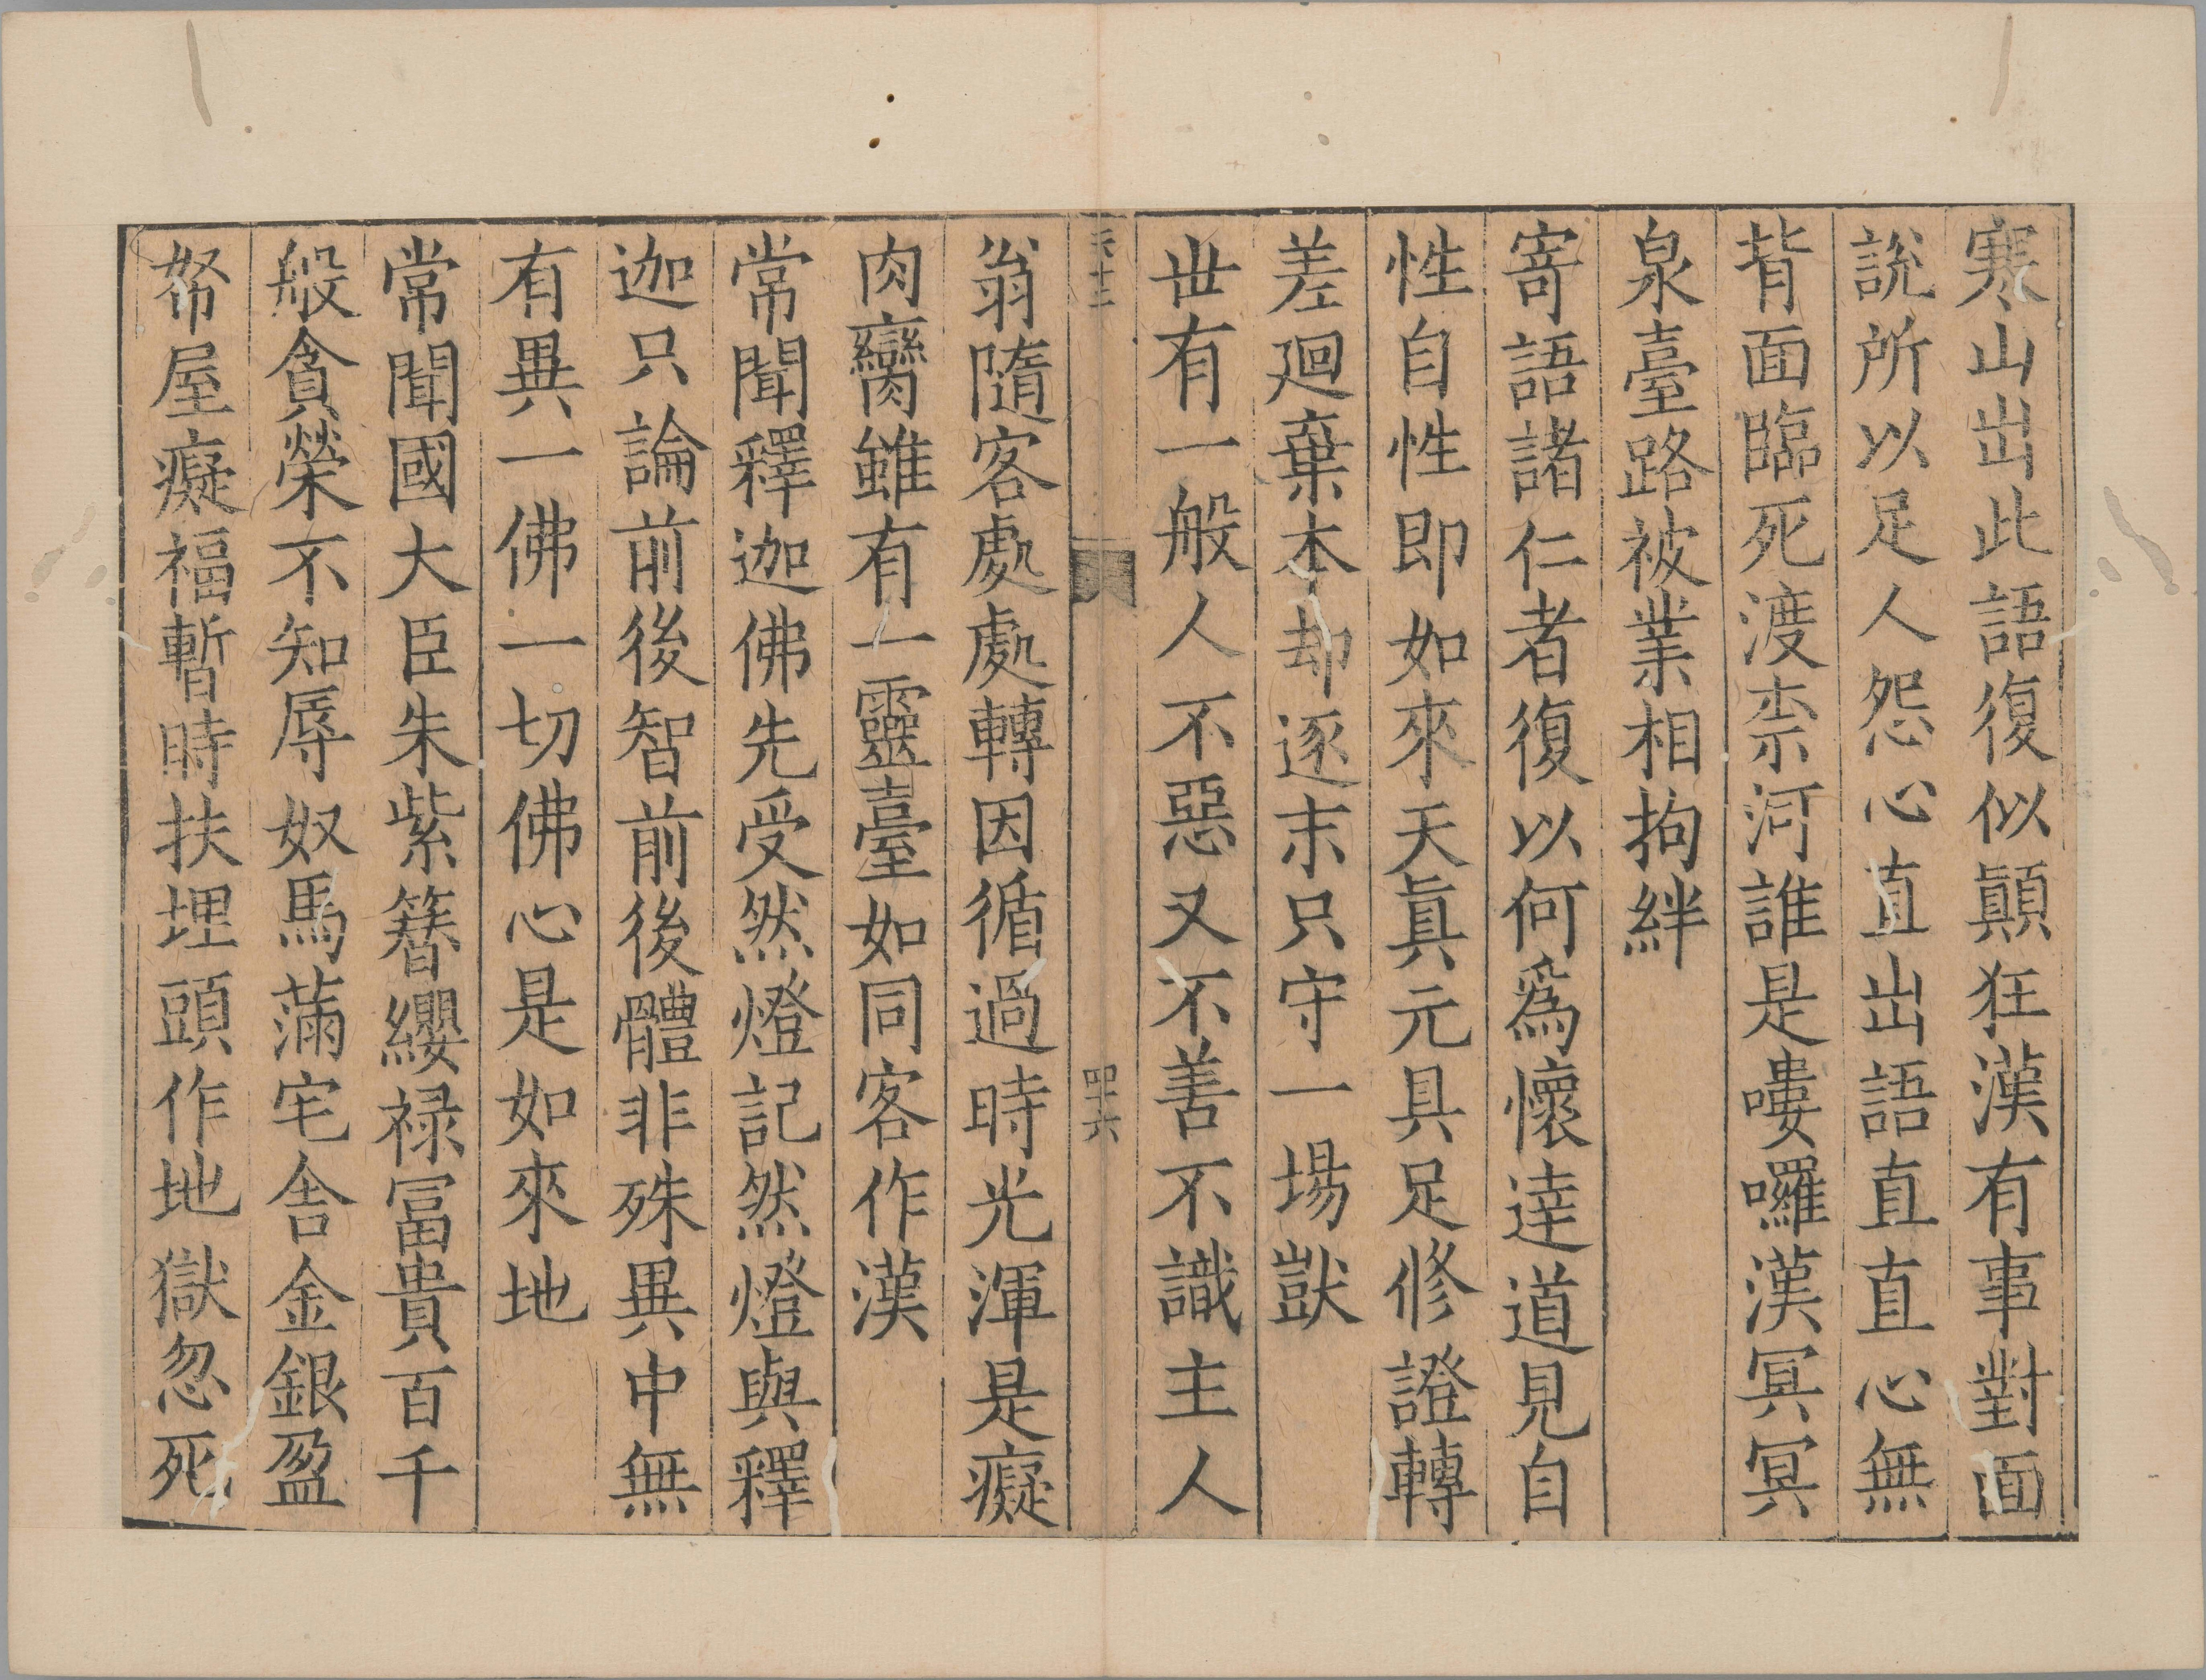 寒山出此語復似顛狂漢有事對面
說所以足人怨心直出語直直心無
背面臨死渡柰河誰是嘍囉漢冥冥
泉臺路被業相拘絆
寄語諸仁者復以何爲懷達道見自
性自性即如來天眞元具足修證轉
差廻棄本却逐末只守一場獃
世有一般人不惡又不善不識主人
四十六
翁隨客處處轉因循過時光渾是癡
肉臠雖有一靈臺如同客作漢
常聞釋迦佛先受然燈記然燈與釋
迦只論前後智前後體非殊異中無
有異一佛一切佛心是如來地
常聞國大臣朱紫簪纓禄冨貴百千
般貪榮不知辱奴馬滿宅舎金銀盈
帑屋癡福暫時扶埋頭作地獄忽死